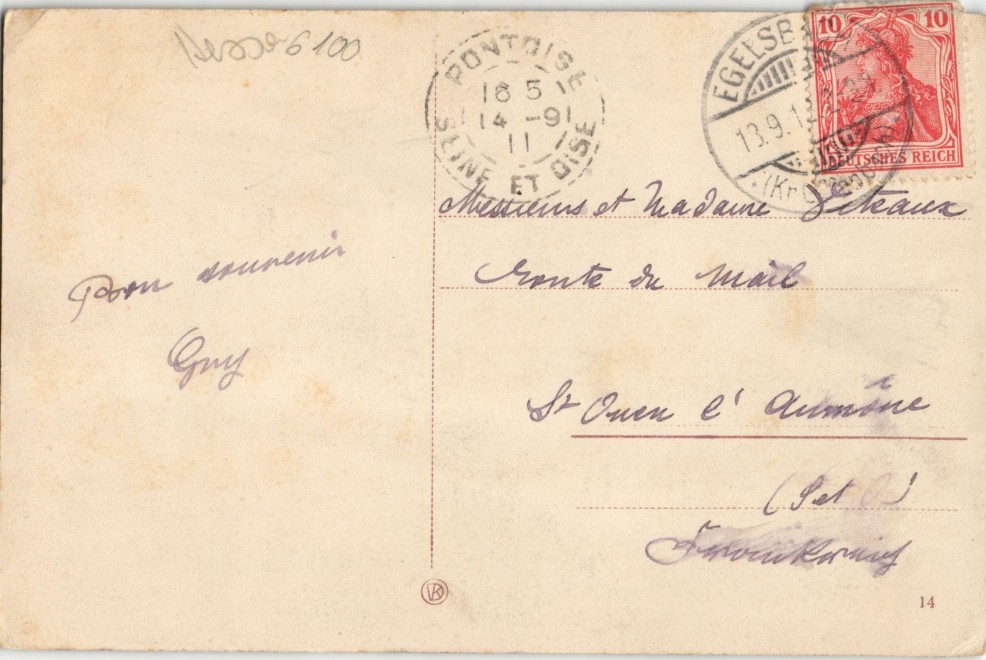 Hesso 6100
PONTOISE
18 5
14 -9
11
SEINE ET OISE
EGELSBACH
13.9.1
10 10
DEUTSCHES REICH
Messieurs et Madame
Route du Mail
St Ouen l'Aumône
(S et O)
Frankreich
Bon souvenir
Guy
14